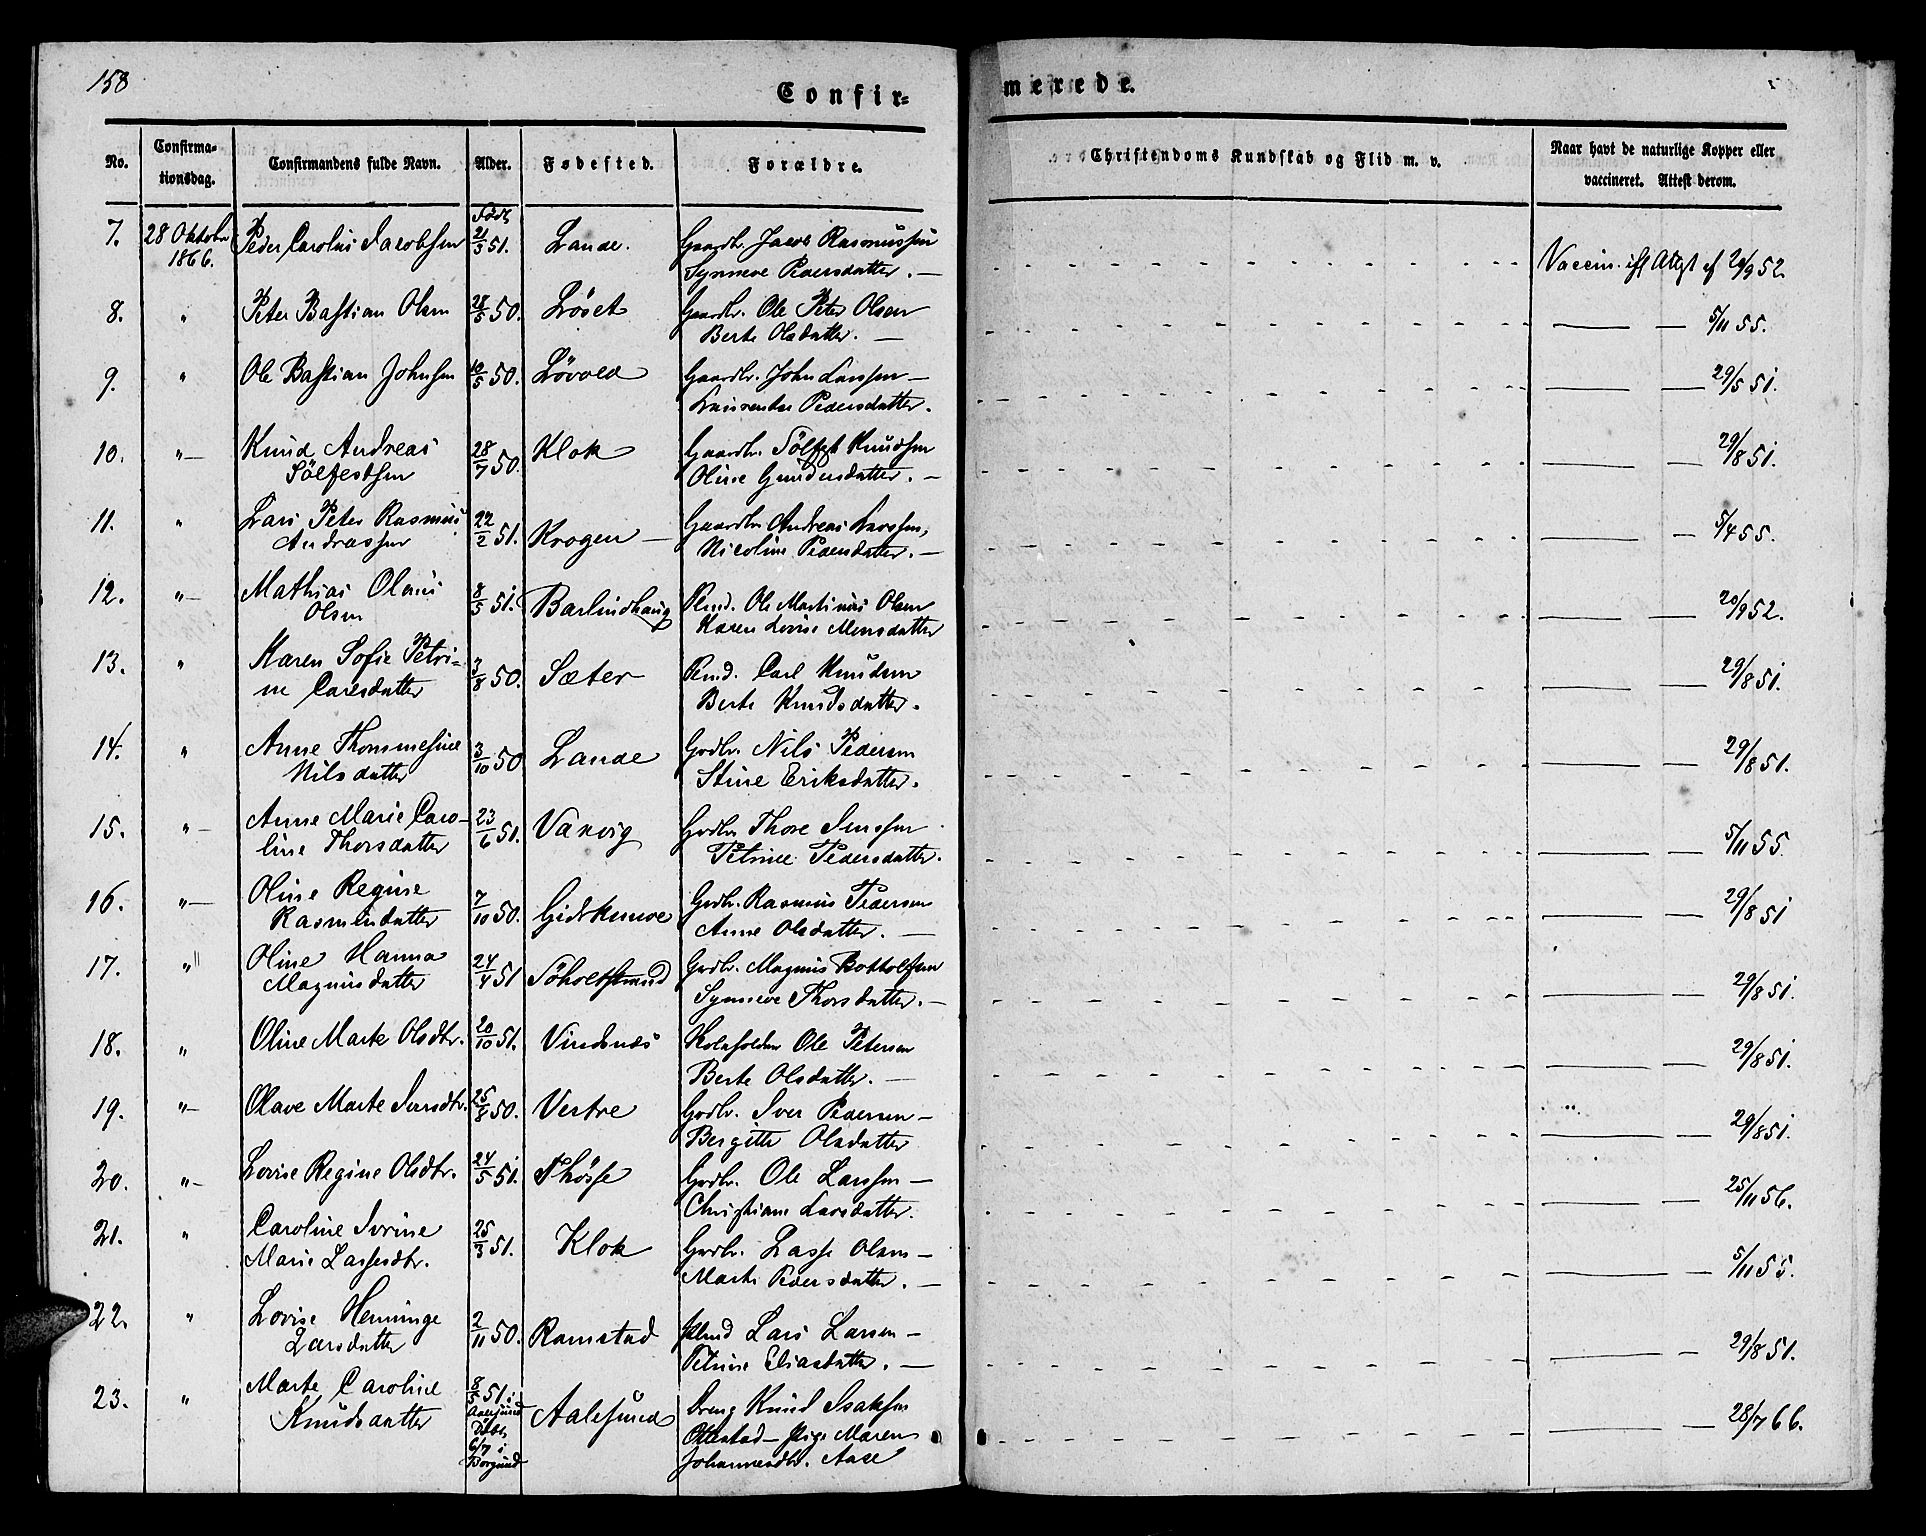 158
Confir=
merede.
No. Confirma-tionsdag. Confirmandens fulde Navn. Alder. Fødested. Forældre. Christendoms Kundskab og Flid m. v. Naar havt de naturlige Kopper eller vaccineret. Attest derom.
Født
7. 28 Oktober 1866. Peder Carolus Jacobsen 21/3 51. Lande. Gaardbr. Jacob Rasmussen
Synneve Pedersdatter. — Vaccin. ifl Attest af 20/9 52.
8. " Peter Bastian Olsen 28/5 50. Löset Gaardbr. Ole Peter Olsen
Berte Olsdatter. — 5/11 55.
9. " Ole Bastian Johnsen 10/5 50. Lövold Gaardbr. John Larssen —
Laurentse Pedersdatter. 29/5 51.
10. "— Knud Andreas Sölfestsen 28/7 50. Klok Gaardbr. Sölfest Knudsen
Oline Gundersdatter. — 29/8 51.
11. " Lars Peter Rasmus Andreassen 22/2 51. Krogen — Gaardbr Andreas Larssen,
Nicoline Pedersdatter. — 5/4 55.
12. "— Mathias Olaus Olsen 8/5 51. Barlindhaug Plmd. Ole Martinus Olsen
Karen Lovise Monsdatter 20/9 52.
13. " Karen Sofie Petri-
ne Carlsdatter 3/8 50. Sæter Plmd. Carl Knudsen
Berte Knudsdatter. 29/8 51.
14. " Anne Thommesine Nilsdatter 3/10 50 Lande Grdbr. Nils Pedersen
Stine Eriksdatter. 29/8 51.
15. "— Anne Marie Caro-
line Thorsdatter 23/6 51. Vaxvig Grdbr Thore Jenssen
Petrine Pedersdatter. 5/11 55.
16. "— Oline Regine Rasmusdatter 7/10 50. Gidskemoe Grdbr. Rasmus Pedersen
Anne Olsdatter. — 29/8 51
17. " Oline Hanna Magnusdatter 24/4 51 Söholtstrand Grdbr. Magnus Bottolfsen
Synneve Thorsdatter. — 29/8 51.
18. " Oline Marte Olsdtr. 20/10 51. Vindsnes Ole Petersen
Berte Olsdatter. — 29/8 51.
19. "— Olave Marte Iversdtr. 25/8 50. Vestre Grdbr. Iver Pedersen —
Bergitte Olsdatter 29/8 51.
20. "— Lovise Regine Olsdtr. 24/5 51. Thösse Grdbr. Ole Larssen —
Christiane Larsdatter. 25/11 56.
21. " Caroline Severine
Marie Lassesdtr. 25/3 51. Klok Grdbr. Lasse Olsen —
Marte Pedersdatter. — 5/11 55.
22. " Lovise Henninge Larsdatter 2/11 50. Ramstad Plmd Lars Larsen —
Petrine Eliasdatter. — 29/8 51.
23. " Marte Caroline Knudsdatter 8/5 51. i Aalesund Döbt 6/7 i Borgund Aalesund Dreng Knud Isaksen
Ottestad — Pige Maren
Johannesdtr. Aase 28/7 66.